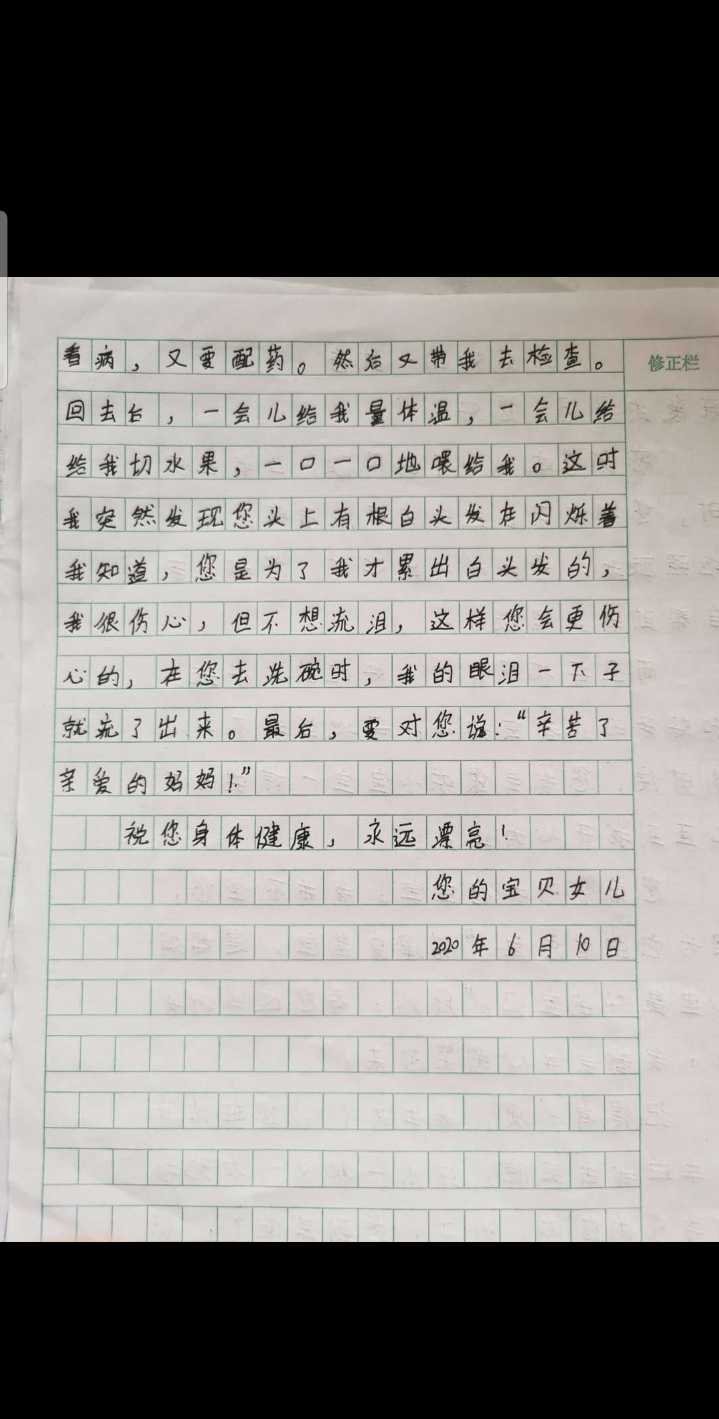 看病，又要配药。然后又带我去检查。
修正栏
回去后，一会儿给我量体温，一会儿给
给我切水果，一口一口地喂给我。这时
我突然发现您头上有根白头发在闪烁着
我知道，您是为了我才累出白头发的，
我很伤心，但不想流泪，这样您会更伤
心的，在您去洗碗时，我的眼泪一下子
就流了出来。最后，要对您说：“辛苦了
亲爱的妈妈！”
祝您身体健康，永远漂亮！
您的宝贝女儿
2020年6月10日